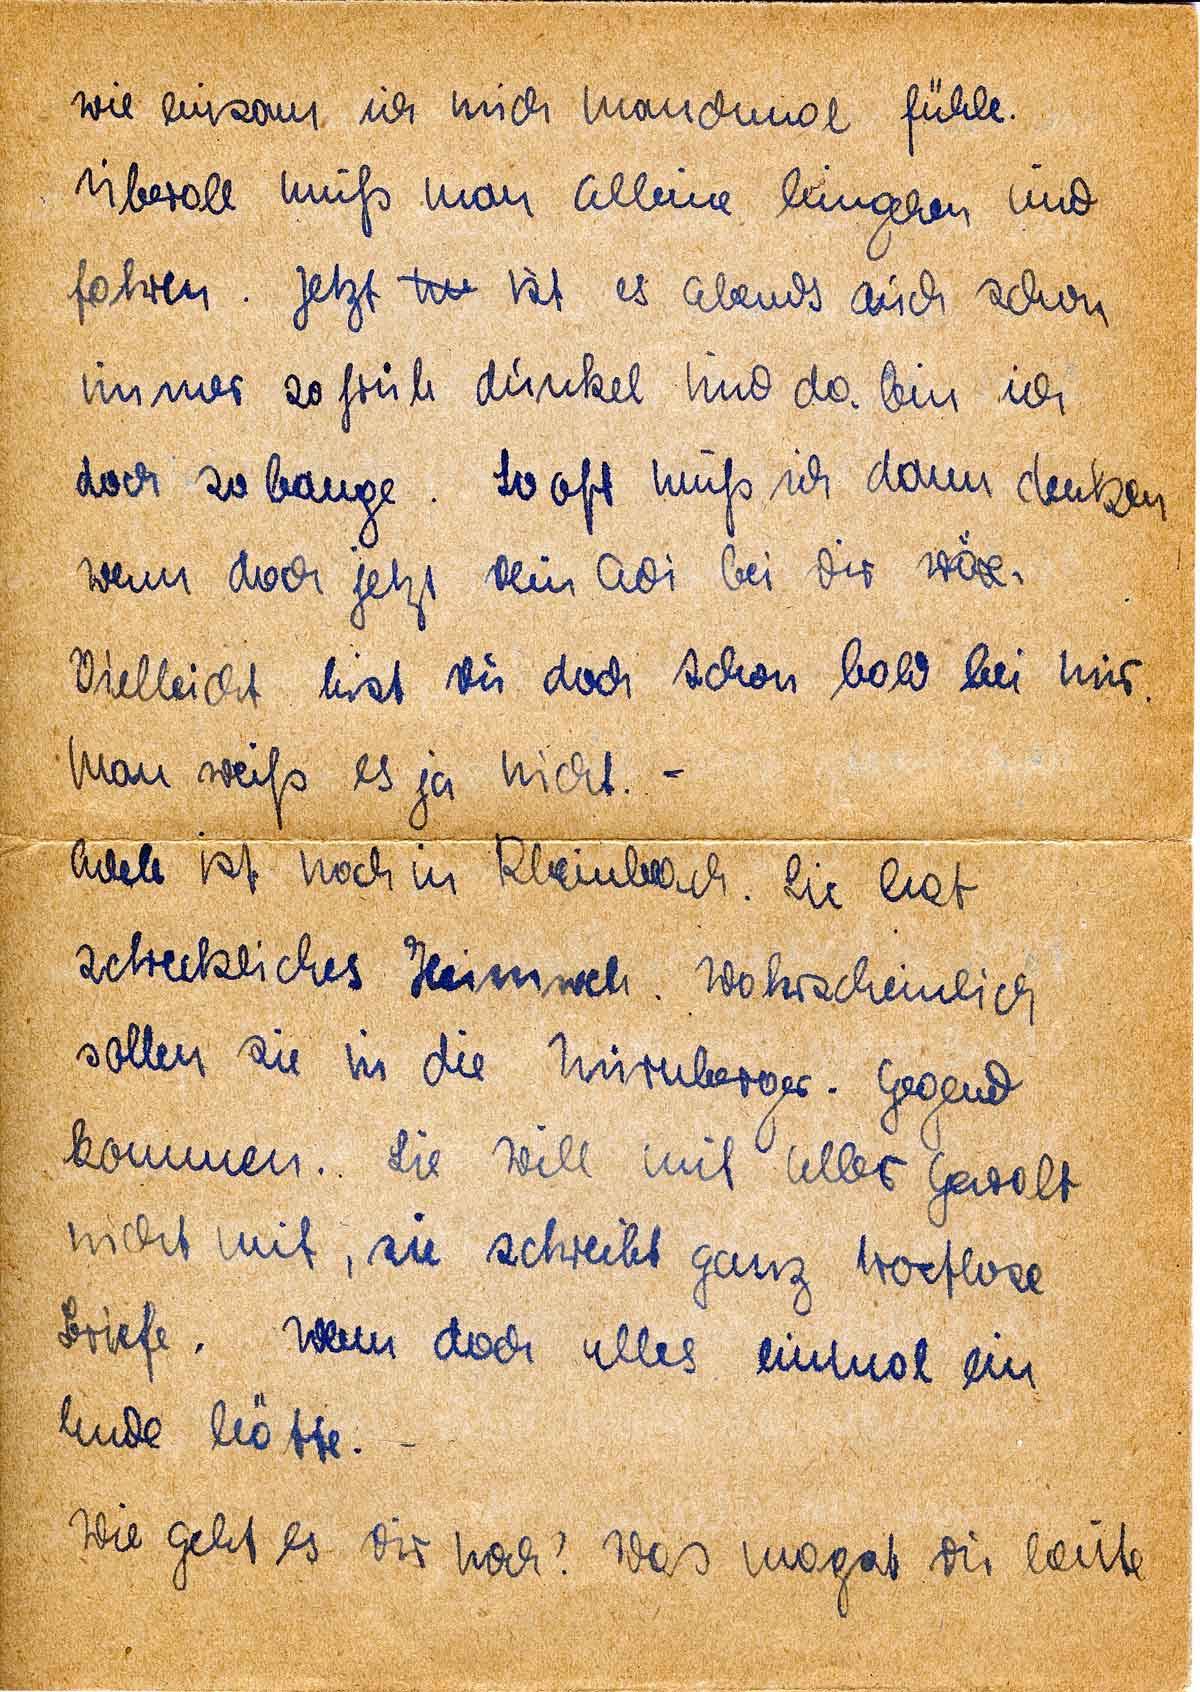 wie einsam ich mich manchmal fühle.
Überall muß man alleine hingehen und
fahren. Jetzt ist es abends auch schon
immer so früh dunkel und da bin ich
doch so bange. So oft muß ich dann denken
wenn doch jetzt dein Adi bei dir wär.
Vielleicht bist du doch schon bald bei mir.
Man weiß es ja nicht. -
Adele ist noch in Rheinbach. Sie hat
schreckliches Heimweh. Wahrscheinlich
sollen sie in die Nürnberger. Gegend
kommen. Sie will mit aller Gewalt
nicht mit, sie schreibt ganz trostlose
Briefe. Wenn doch alles einmal ein
Ende hätte. -
Wie geht es dir noch? Was magst du heute